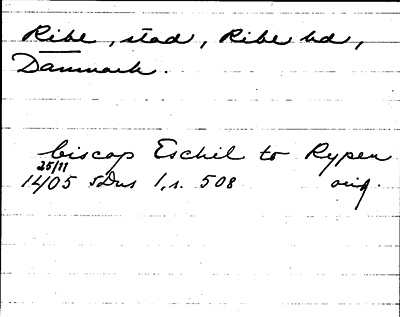 Ribe, stad, Ribe hd,
Danmark.
biscop Eschil to Rypen
25/11
1405 SDns 1, s. 508 orig.